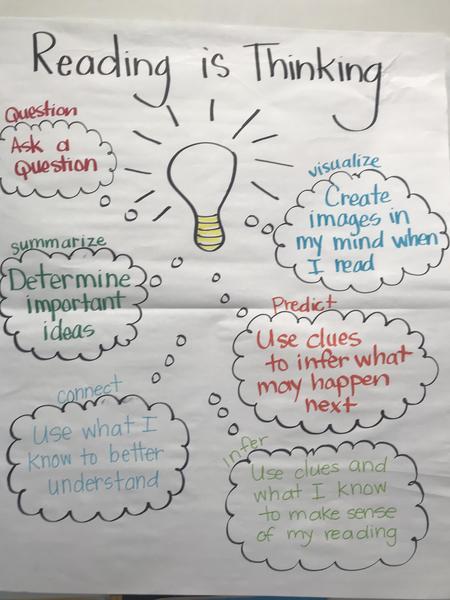 Reading is Thinking
Question
Ask a
Question
visualize
Create
images in
my mind when
I read
summarize
Determine
important
ideas
Predict
Use clues
to infer what
may happen
next
connect
Use what I
know to better
understand
infer
Use clues and
what I know
to make sense
of my reading